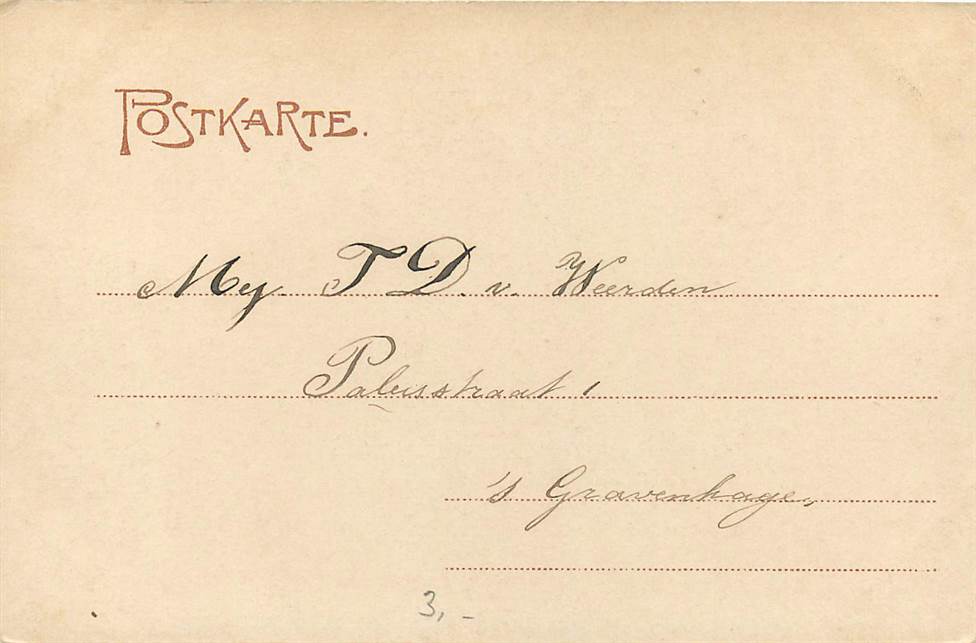 POSTKARTE.
Mej. T D. v. Weerden
Paleisstraat 1
's Gravenhage,
3,-